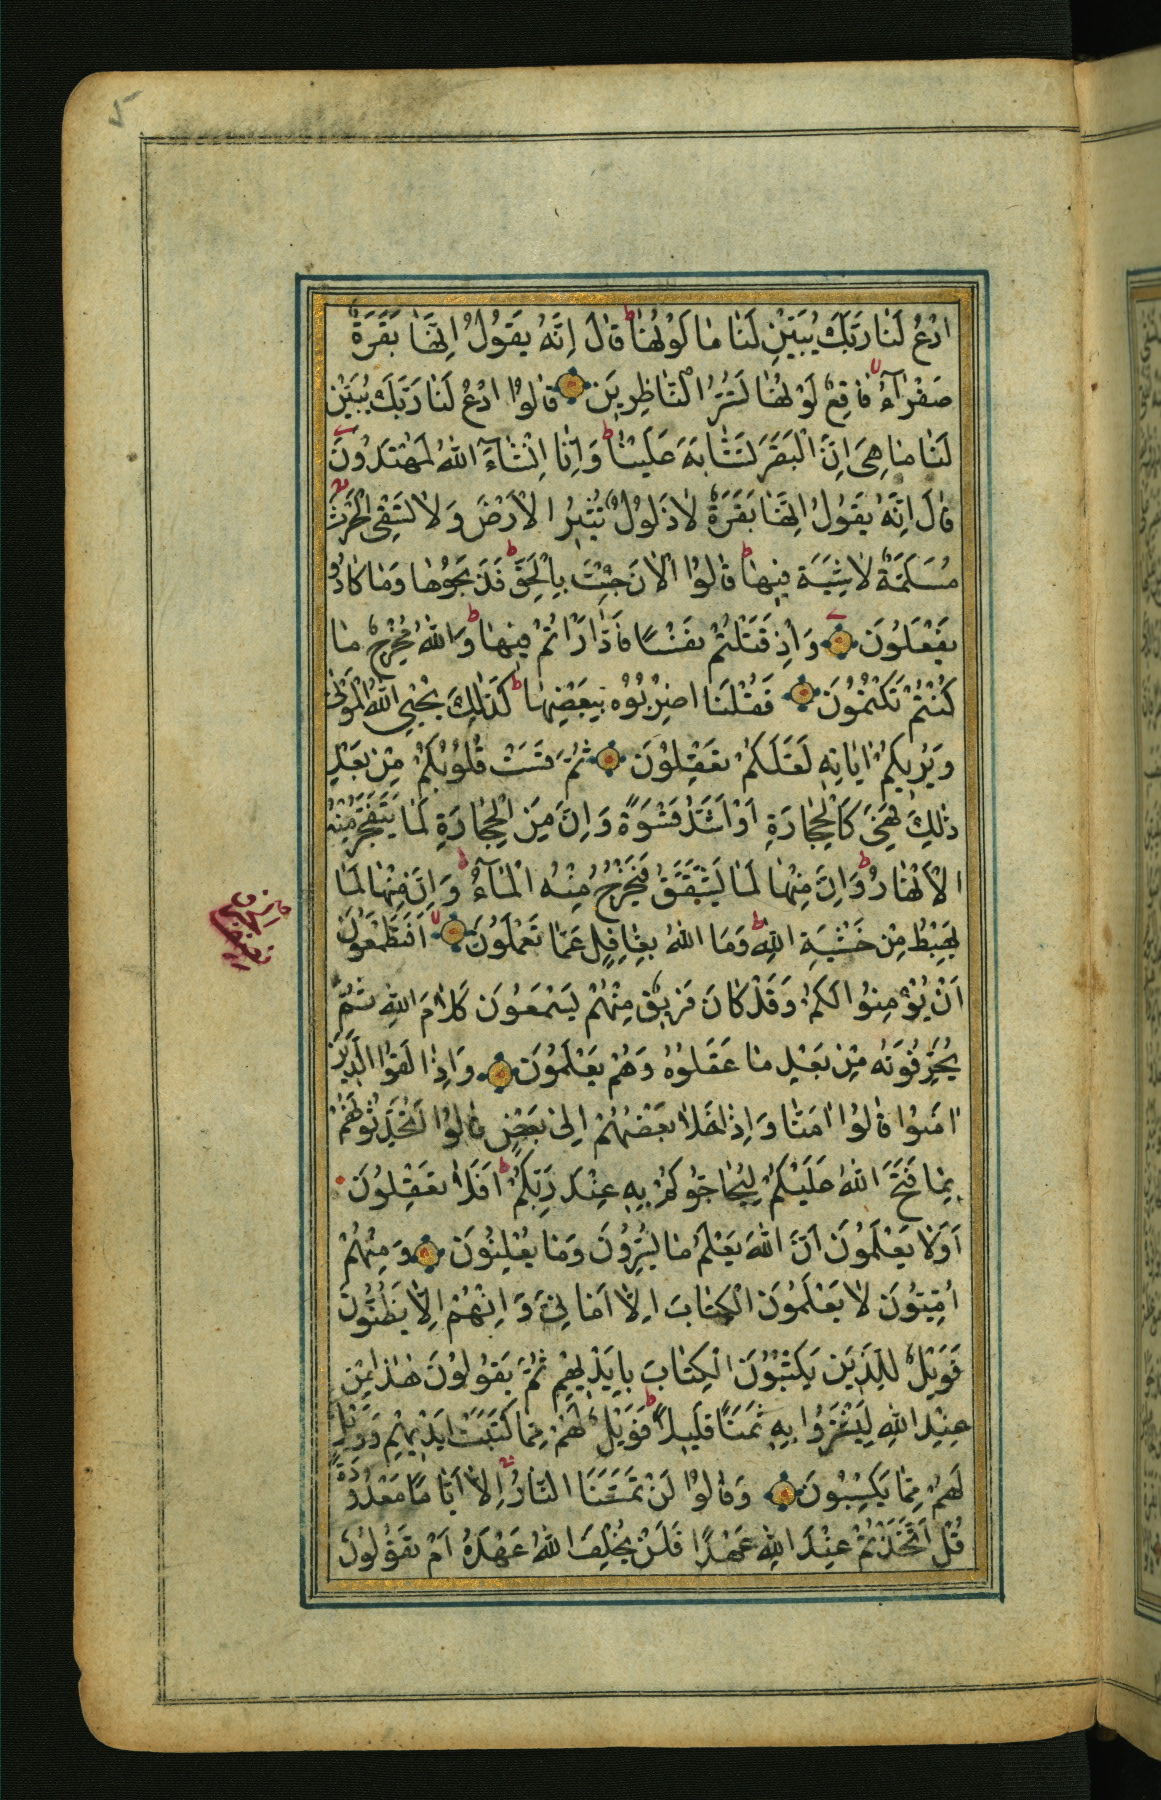 ادْعُ لَنَا رَبَّكَ يُبَيِّنْ لَنَا مَا لَوْنُهَا ط قَالَ اِنَّهُ يَقُولُ اِنَّهَا بَقَرَةٌ
صَفْرَآءُ فَاقِعٌ لَوْنُهَا تَسُرُّ النَّاظِرِينَ قَالُوا ادْعُ لَنَا رَبَّكَ يُبَيِّنْ
لَنَا مَا هِيَ اِنَّ الْبَقَرَ تَشَابَهَ عَلَيْنَا ط وَاِنَّا اِنْشَآءَ اللهُ لَمُهْتَدُونَ
قَالَ اِنَّهُ يَقُولُ اِنَّهَا بَقَرَةٌ لَا ذَلُولٌ تُثِيرُ الْاَرْضَ وَلَا تَسْقِي الْحَرْثَ
مُسَلَّمَةٌ لَا شِيَةَ فِيهَا ط قَالُوا الْاٰنَ جِئْتَ بِالْحَقِّ ط فَذَبَحُوهَا وَمَا كَادُوا
يَفْعَلُونَ وَاِذْ قَتَلْتُمْ نَفْسًا فَادَّارَاْتُمْ فِيهَا ط وَاللهُ مُخْرِجٌ مَا
كُنْتُمْ تَكْتُمُونَ فَقُلْنَا اضْرِبُوهُ بِبَعْضِهَا ط كَذٰلِكَ يُحْيِي اللهُ الْمَوْتٰى
وَيُرِيكُمْ اٰيَاتِهِ لَعَلَّكُمْ تَعْقِلُونَ ثُمَّ قَسَتْ قُلُوبُكُمْ مِنْ بَعْدِ
ذٰلِكَ فَهِيَ كَالْحِجَارَةِ اَوْ اَشَدُّ قَسْوَةً وَاِنَّ مِنَ الْحِجَارَةِ لَمَا يَتَفَجَّرُ مِنْهُ
الْاَنْهَارُ ط وَاِنَّ مِنْهَا لَمَا يَشَّقَّقُ فَيَخْرُجُ مِنْهُ الْمَآءُ ط وَاِنَّ مِنْهَا لَمَا
يَهْبِطُ مِنْ خَشْيَةِ اللهِ ط وَمَا اللهُ بِغَافِلٍ عَمَّا تَعْمَلُونَ اَفَتَطْمَعُونَ
اَنْ يُؤْمِنُوا لَكُمْ وَقَدْ كَانَ فَرِيقٌ مِنْهُمْ يَسْمَعُونَ كَلَامَ اللهِ ثُمَّ
يُحَرِّفُونَهُ مِنْ بَعْدِ مَا عَقَلُوهُ وَهُمْ يَعْلَمُونَ وَاِذَا لَقُوا الَّذِينَ
اٰمَنُوا قَالُوا اٰمَنَّا وَاِذَا خَلَا بَعْضُهُمْ اِلٰى بَعْضٍ قَالُوا اَتُحَدِّثُونَهُمْ
بِمَا فَتَحَ اللهُ عَلَيْكُمْ لِيُحَاجُّوكُمْ بِهِ عِنْدَ رَبِّكُمْ ط اَفَلَا تَعْقِلُونَ
اَوَلَا يَعْلَمُونَ اَنَّ اللهَ يَعْلَمُ مَا يُسِرُّونَ وَمَا يُعْلِنُونَ وَمِنْهُمْ
اُمِّيُّونَ لَا يَعْلَمُونَ الْكِتَابَ اِلَّا اَمَانِيَّ وَاِنْهُمْ اِلَّا يَظُنُّونَ
فَوَيْلٌ لِلَّذِينَ يَكْتُبُونَ الْكِتَابَ بِاَيْدِيهِمْ ثُمَّ يَقُولُونَ هٰذَا مِنْ
عِنْدِ اللهِ لِيَشْتَرُوا بِهِ ثَمَنًا قَلِيلًا ط فَوَيْلٌ لَهُمْ مِمَّا كَتَبَتْ اَيْدِيهِمْ وَوَيْلٌ
لَهُمْ مِمَّا يَكْسِبُونَ وَقَالُوا لَنْ تَمَسَّنَا النَّارُ اِلَّا اَيَّامًا مَعْدُودَةً
قُلْ اَتَّخَذْتُمْ عِنْدَ اللهِ عَهْدًا فَلَنْ يُخْلِفَ اللهُ عَهْدَهُ اَمْ تَقُولُونَ